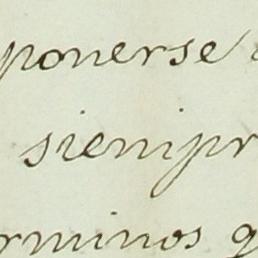 ponerse
siempr
rminos q